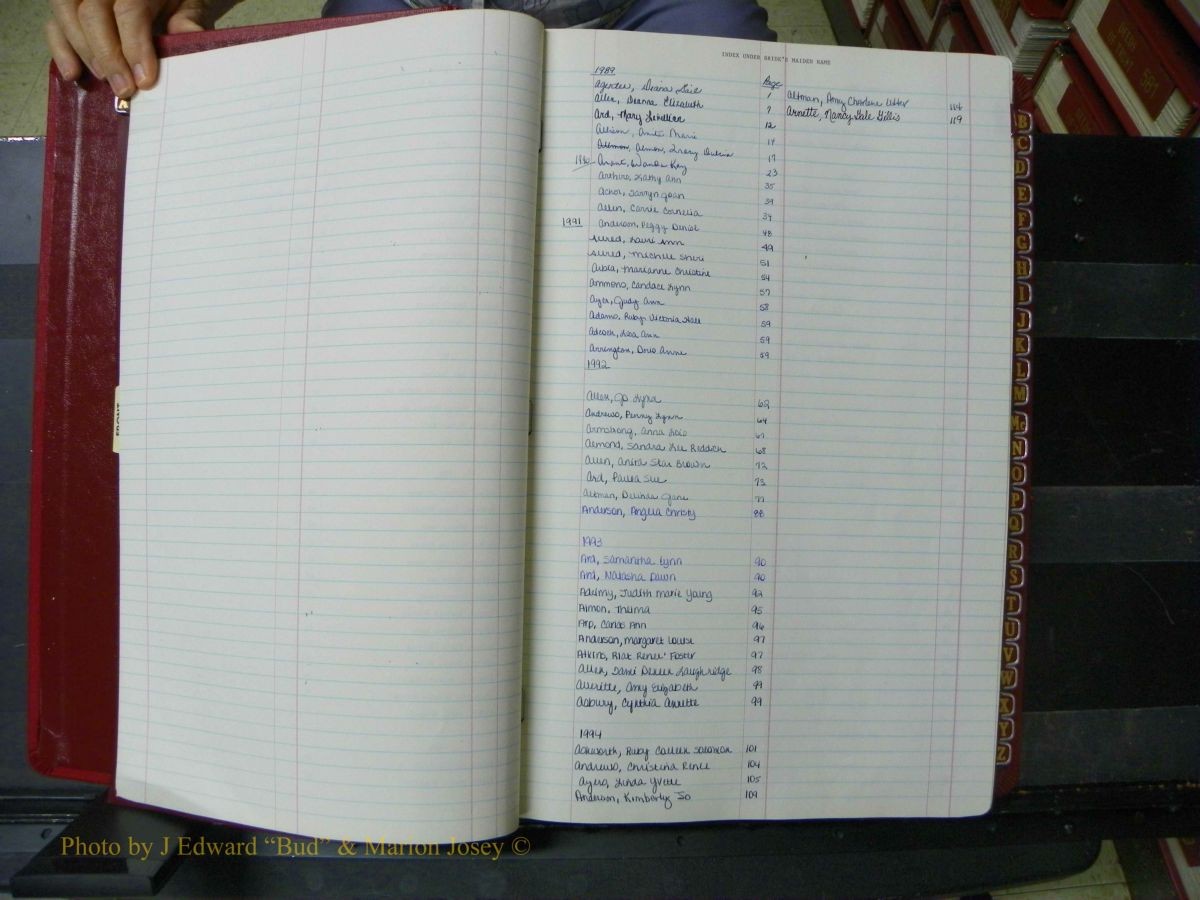 INDEX UNDER BRIDE'S MAIDEN NAME
1989 Page
Diana Gail 1
Allen, Deanna Elizabeth 7
Ard, Mary 12
Allison, Anita Marie 14
Almon, Tracy 17
1990 Wanda Kay 23
Kathy Ann 35
Achor, Jarryn Joan 39
Allen, Carrie Cornelia 39
1991 Anderson, Peggy Denise 48
Alred, Lauri Ann 49
Alred, Michele Sheri 51
Marianne Christine 54
Ammons, Candace Lynn 57
Ayer, Judy Ann 58
Adams, Ruby Victoria Hall 59
Adcock, Lisa Ann 59
Arrington, Doris Anne 59
1992
Allen, Jo Lyna 62
Andrews, Penny Lynn 64
Armstrong, Anna Lois 67
Almond, Sandra Lee Reddick 68
Allen, Anita Star Brown 72
Ard, Paula Sue 73
Altman, Delinda Jane 77
Anderson, Angela Christy 88
1993
Ard, Samantha Lynn 90
Ard, Natasha Dawn 90
Adelmy, Judith Marie Young 92
Aimon, Thelma 95
Arp, Candi Ann 96
Anderson, Margaret Louise 97
Atkins, Renee' Foster 97
Allen, Laughridge 98
Averitte, Amy Elizabeth 99
Asbury, Cynthia Annette 99
1994
Ashworth, Ruby Colleen Solomon 101
Andrews, Christina Renee 104
Ayers, Linda Yvette 105
Anderson, Kimberly Jo 109
Altman, Amy Charlene Utter 114
Arnette, Nancy Gale Gillis 119
FRONT
A
B
C
D
E
F
G
H
I
J
K
L
M
Mc
N
O
P
Q
R
S
T
U
V
W
X
Y
Z
581
Photo by J Edward “Bud” & Marion Josey ©